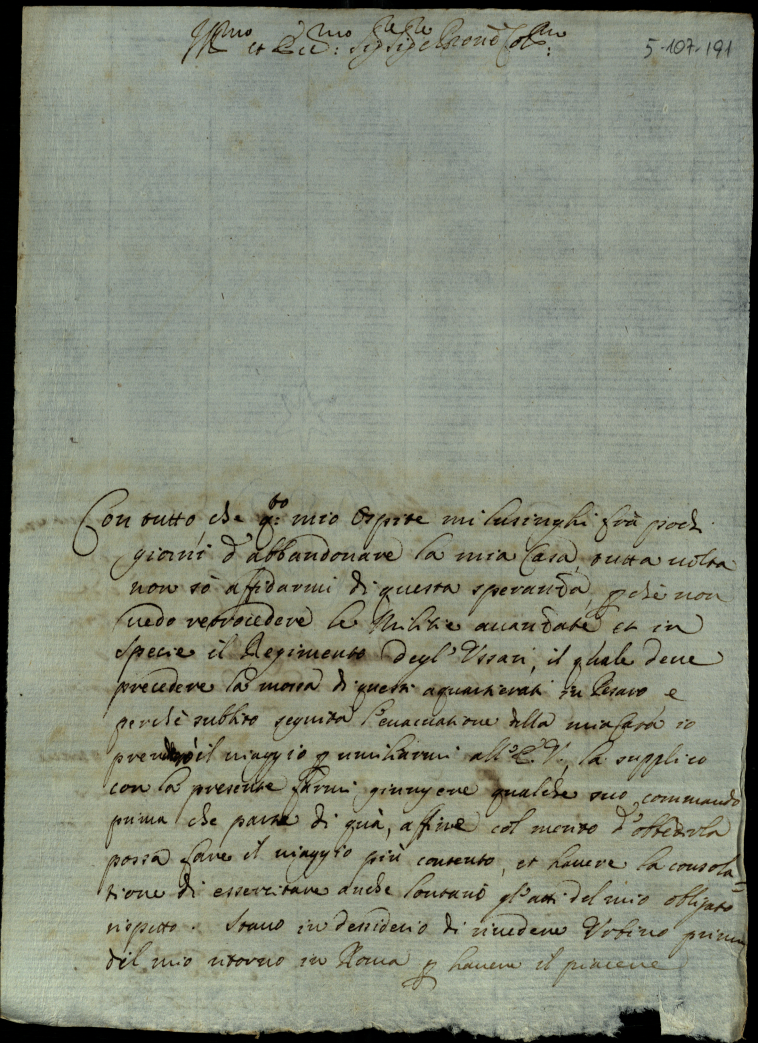 Ill.mo et Ecc.mo Sig.re Sig.re e Prone Col.mo 5-107-191
Con tutto, che q.to mio Ospite mi lusinghi frà pochi
giorni d'abbandonare la mia Casa, tutta uolta
non sò affidarmi di questa speranza, p chè non
uedo retrocedere le Militie auanzate et in
specie il Regimento degl'Ussari, il quale deue
precedere la mossa di questi aquartierati in Pesaro, e
perchè subbito seguita l'euacuatione della mia Casa io
prenderò il uiaggio p umiliarmi all'E. V., la supplico
con la presente farmi giungere qualche suo commando
prima che parta di quà, affine col merito d'obbedirla
possa fare il uiaggio più contento, et hauere la consola=
tione di essercitare anche lontano gl'atti del mio obligato
rispetto. Stauo in dessiderio di riuedere Urbino prima
del mio ritorno in Roma p hauere il piacere